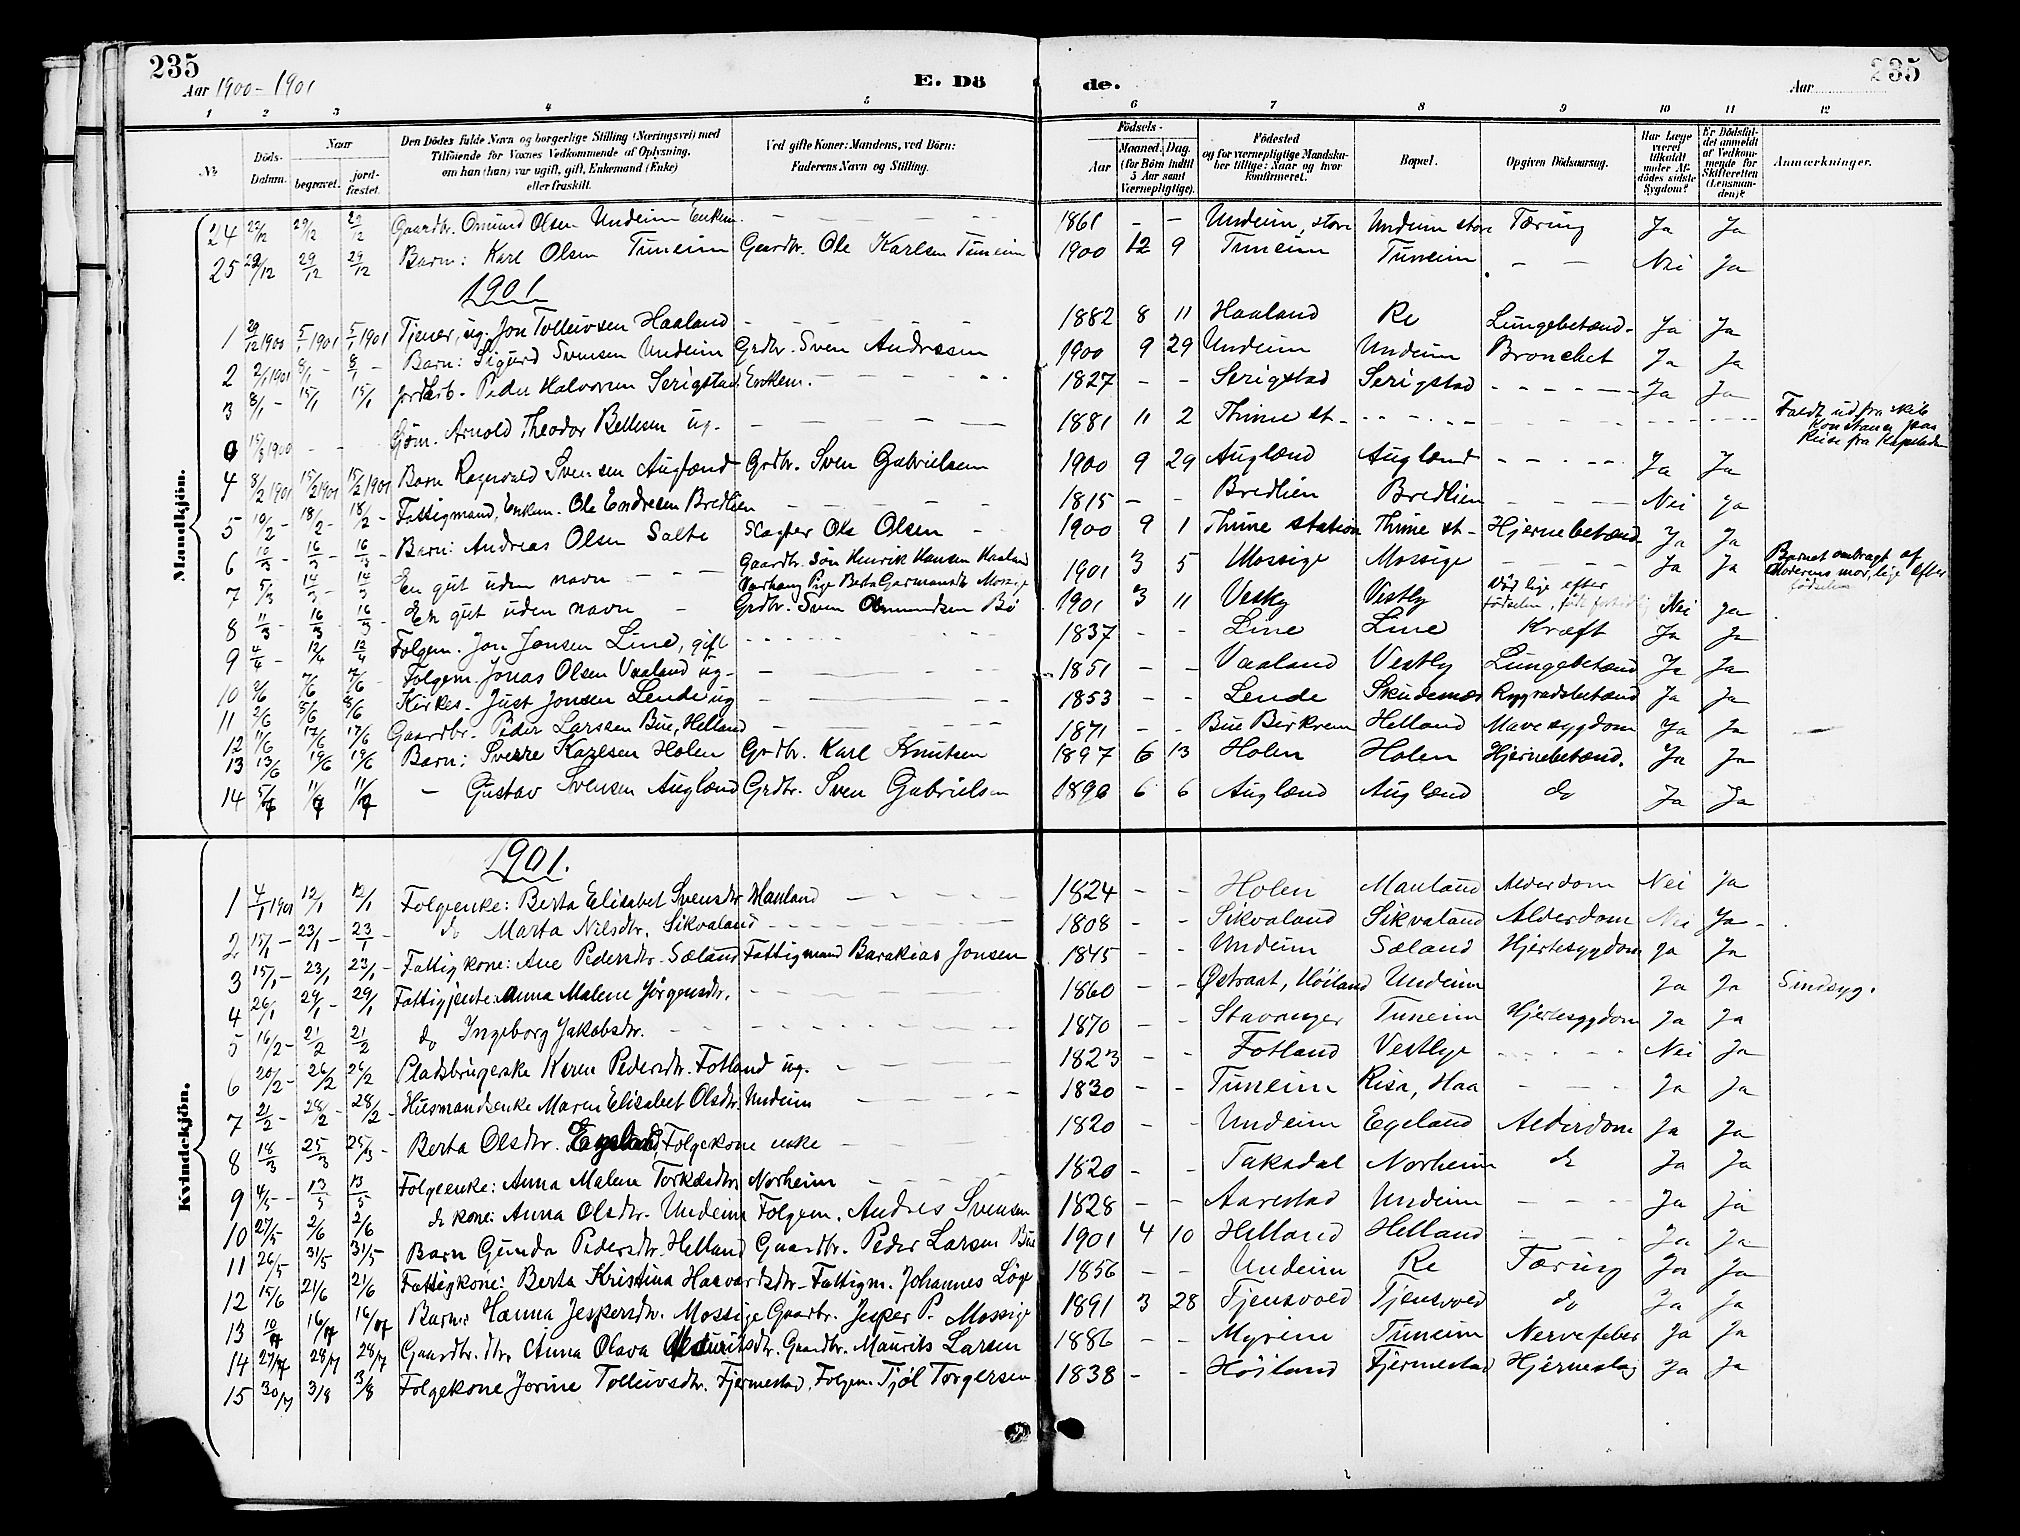 235
Aar 1900-1901
E. Dö
de.
Aar
235
1 2 3 4 5 6 7 8 9 10 11 12
No
Döds-Datum.
Naar
begravet.
jord-fæstet.
Den Dödes fulde Navn og borgerlige Stilling (Næringsvei) med
Tilföiende for Voxnes Vedkommende af Oplysning,
om han (hun) var ugift, gift, Enkemand (Enke)
eller fraskilt.
Ved gifte Koner: Mandens, ved Börn:
Faderens Navn og Stilling.
Födsels-
Aar
Maaned. Dag.
(for Börn indtil
5 Aar samt
Værnepligtige).
Födested
og for værnepligtige Mandska-
ber tillige: Naar og hvor
konfirmeret.
Bopæl.
Opgiven Dödsaarsag.
Har Læge
været
tilkaldt
under Af-
dödes sidste
Sygdom?
Er Dödsfal-
det anmeldt
af Vedkom-
mende for
Skifteretten
(Lensman-
den)?
Anmærkninger.
Mandkjön.
24 29/12 29/12 Gaardbr. Omund Olsen Undeim Enkem. - 1861 - - Undeim, store Undeim store Tæring Ja Ja
25 22/12 29/12 29/12 Barn: Karl Olsen Tuneim Gaardbr. Ole Karlsen Tuneim 1900 12 9 Tuneim Tuneim - - Nei Ja
1901
1 29/12 1900 5/1 1901 5/1 1901 Tjener, ug. Jon Tolleivsen Haaland - 1882 8 11 Haaland Re Lungebetænd. Ja Ja
2 2/1 1901 8/1 - 8/1 - Barn: Sigurd Svensen Undeim Grdbr. Sven Andresen 1900 9 29 Undeim Undeim Bronchet Ja Ja
3 8/1 - 15/1 15/1 Peder Halvorsen Serigstad Enkem. - 1827 - - Serigstad Serigstad - Ja Ja
15/3 1900 - - Gjøm. Arnold Theodor Bellesen ug. - 1881 11 2 Thime st. - Faldt ud fra skib
Konstanse paa
Reise fra Kapstaden
4 8/2 1901 15/2 1901 15/2 1901 Barn Ragnvald Svensen Auglænd Grdbr. Sven Gabrielsen 1900 9 29 Auglænd Auglænd - Ja Ja
5 10/2 - 18/2 - 18/2 - Fattigmand, Enkem. Ole Endresen Bredlien - 1815 - - Bredlien Bredlien - Nei Ja
6 10/3 - 16/3 - 16/3 Barn: Andreas Olsen Salte Slagter Ole Olsen - 1900 9 1 Thime station Thime st - Hjernebetænd. Ja Ja
7 5/3 En gut uden navn - Gaardbr. Søn Henrik Hansen Haaland
Varhaug Pige Berta Garmansdtr Mossige 1901 3 5 Mossige Mossige - Ja Ja Barnet ombragt af
Moderens mor, lige efter
fødselen
8 11/3 16/3 - 16/3 En gut uden navn - Grdbr. Sven Osmundsen Bø 1901 3 11 Vestly Vestly Død lige efter
fødselen, Nei Ja
9 4/4 - 12/4 12/4 Folgem. Jon Jonsen Line, gift - 1837 - - Line Line Kræft Ja Ja
10 2/6 7/6 7/6 - Folgem. Jonas Olsen Vaaland ug. - 1851 - - Vaaland Vestly Lungebetænd Ja Ja
11 2/6 8/6 8/6 Kirkes. Just Jonsen Lende ug - 1853 - - Lende Skudenæs Rygradsbetænd Ja Ja
12 11/6 17/6 17/6 Gaardbr. Peder Larssen Bue, Helland - 1871 - - Bue Birkrem Helland Mavesygdom Ja Ja
13 13/6 19/6 19/6 Barn: Sverre Karlsen Holen Grdbr. Karl Knutsen 1897 6 13 Holen Holen Hjernebetænd. Ja Ja
14 5/7 11/7 11/7 - Gustav Svensen Auglænd Grdbr. Sven Gabrielsen 1890 6 6 Auglænd Auglænd do Ja Ja
Kvindekjön.
1901.
1 4/1 1901 12/1 12/1 Folgeenke: Berta Elisabet Svensdtr Mauland - 1824 - - Holen Mauland Alderdom Nei Ja
2 15/1 - 23/1 - 23/1 - do Marta Nilsdtr. Sikvaland - 1808 - - Sikvaland Sikvaland Alderdom Nei Ja -
3 15/1 - 23/1 23/1 - Fattigkone: Ane Pedersdtr. Sæland Fattigmand Barakias Jonsen 1845 - - Undeim Sæland Hjertesygdom Ja Ja
4 26/1 29/1 - 29/1 Fattigjente: Anna Malene Jørgensdtr. - 1860 - - Østraat, Høiland Undeim Ja Ja Sindsyg.
5 16/2 - 21/2 21/2 do Ingeborg Jakobsdtr. - 1870 - - Stavanger Tuneim Hjertesygdom Ja Ja
6 20/2 - 26/2 26/2 Pladsbrugerske Karen Pedersdtr. Fotland ug. - 1823 - - Fotland Vestlye - Nei Ja
7 21/2 - 28/2 - 28/2 - Husmandsenke Maren Elisabet Olsdtr. Undeim - 1830 - - Tuneim Risa, Haa - Ja Ja
8 18/3 25/3 25/3 - Berta Olsdtr. Egeland, Folgekone enke - 1820 - - Undeim Egeland Alderdom Ja Ja
9 4/5 - 13/5 13/5 Folgeenke: Anna Malene Torkelsdtr Norheim - 1820 - - Taksdal Norheim do Ja Ja
10 27/5 2/6 2/6 do kone: Anna Olsdtr. Undeim Folgem. Andres Svensen 1828 - - Aarestad Undeim - Ja ja
11 26/5 31/5 31/5 Barn Gunda Pedersdtr. Helland Gaardbr. Peder Larsen Bue 1901 4 10 Helland Helland - Ja Ja
12 15/6 21/6 21/6 Fattigkone: Berta Kristina Haavardsdtr - Fattigm. Johannes Løge 1856 - - Undeim Re Tæring Ja Ja
13 10/7 16/7 16/7 Barn: Hanna Jespersdtr. Mossige Gaardbr. Jesper P. Mossige 1891 3 28 Tjensvold Tjensvold do Ja Ja
14 27/7 28/7 28/7 Gaardbr. dtr Anna Olava Mauritsdtr. Gaardbr. Maurits Larsen 1886 - - Myrene Tuneim Nervefeber Ja Ja
15 30/7 3/8 3/8 Folgekone Jorine Tolleivsdtr. Fjermestad, Folgem. Tjøl Torgersen 1838 - - Høiland Fjermestad Hjerneslag Ja Ja